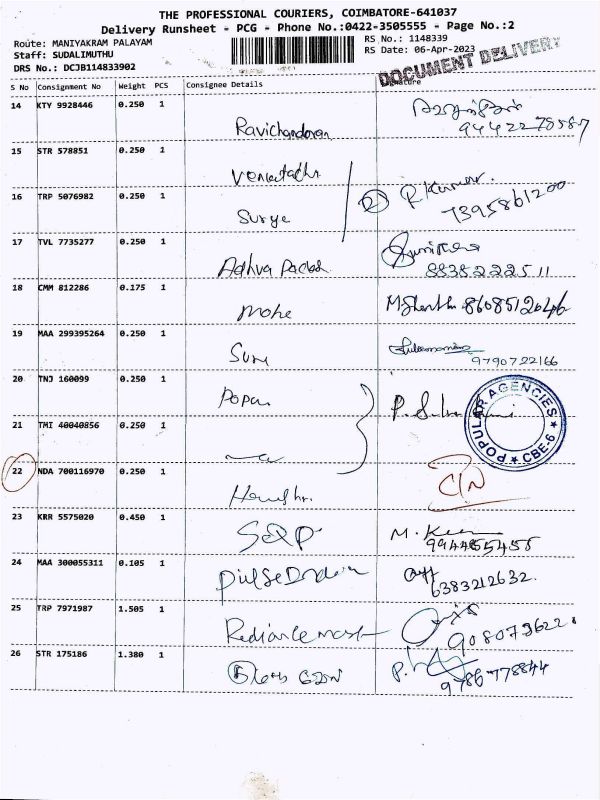 THE PROFESSIONAL COURIERS, COIMBATORE-641037
Delivery Runsheet - PCG - Phone No.:0422-3505555 - Page No.:2
Route: MANIYAKRAM PALAYAM
RS No.: 1148339
Staff: SUDALIMUTHU
RS Date: 06-Apr-2023
DRS No.: DCJB114833902
DOCUMENT DELIVERY
S No Consignment No Weight PCS Consignee Details
14 KTY 9928446 0.250 1 Ravichandran
9442278587
15 STR 578851 0.250 1
16 TRP 5076982 0.250 1 Surye R. Kumar.
7395861200
17 TVL 7735277 0.250 1
8838222511
18 CMM 812286 0.175 1 Mohe 8608512646
19 MAA 299395264 0.250 1
9790722166
20 TNJ 160099 0.250 1
POPULAR AGENCIES
CBE-6
21 TMI 40040856 0.250 1
22 NDA 700116970 0.250 1 C/N
23 KRR 5575020 0.450 1 S&P M.
9944855455
24 MAA 300055311 0.105 1
6383212632.
25 TRP 7971987 1.505 1
26 STR 175186 1.380 1 P.
9786778844